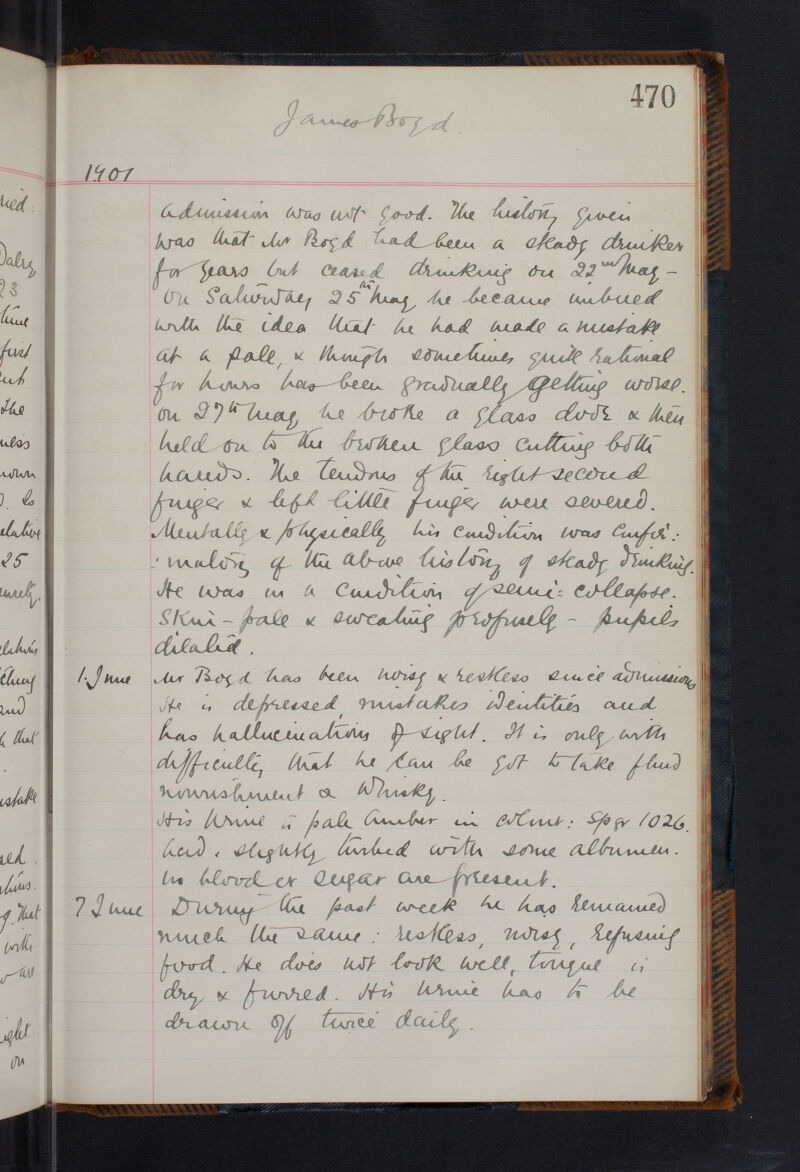 470
James Boyd.
1901
admission was not good. The history given
was that Mr Boyd had been a steady drinker
for years but ceased drinking on 22nd May -
On Saturday 25th May he became imbued
with the idea that he had made a mistake
at a sale, & though sometimes quite rational
for hours has been gradually getting worse.
On 27th May he broke a glass door & then
held on to the broken glass cutting both
hands. The tendons of the right second
finger & left little finger were severed.
Mentally & physically his condition was confir:
:matory of the above history of steady drinking.
He was in a condition of semi: collapse.
Skin - pale & sweating profusely - pupils
dilated.
1. June Mr Boyd has been noisy & restless since admission
He is depressed, mistakes identities and
has hallucinations of sight. It is only with
difficulty that he can be got to take fluid
nourishment & Whisky.
His Urine is pale Amber in colour: Sp gr 1026.
Acid. slightly turbid with some albumen.
No blood or sugar are present.
7 June During the past week he has remained
much the same: restless, noisy, refusing
food. He does not look well, tongue is
dry & furred. His Urine has to be
drawn off twice daily.